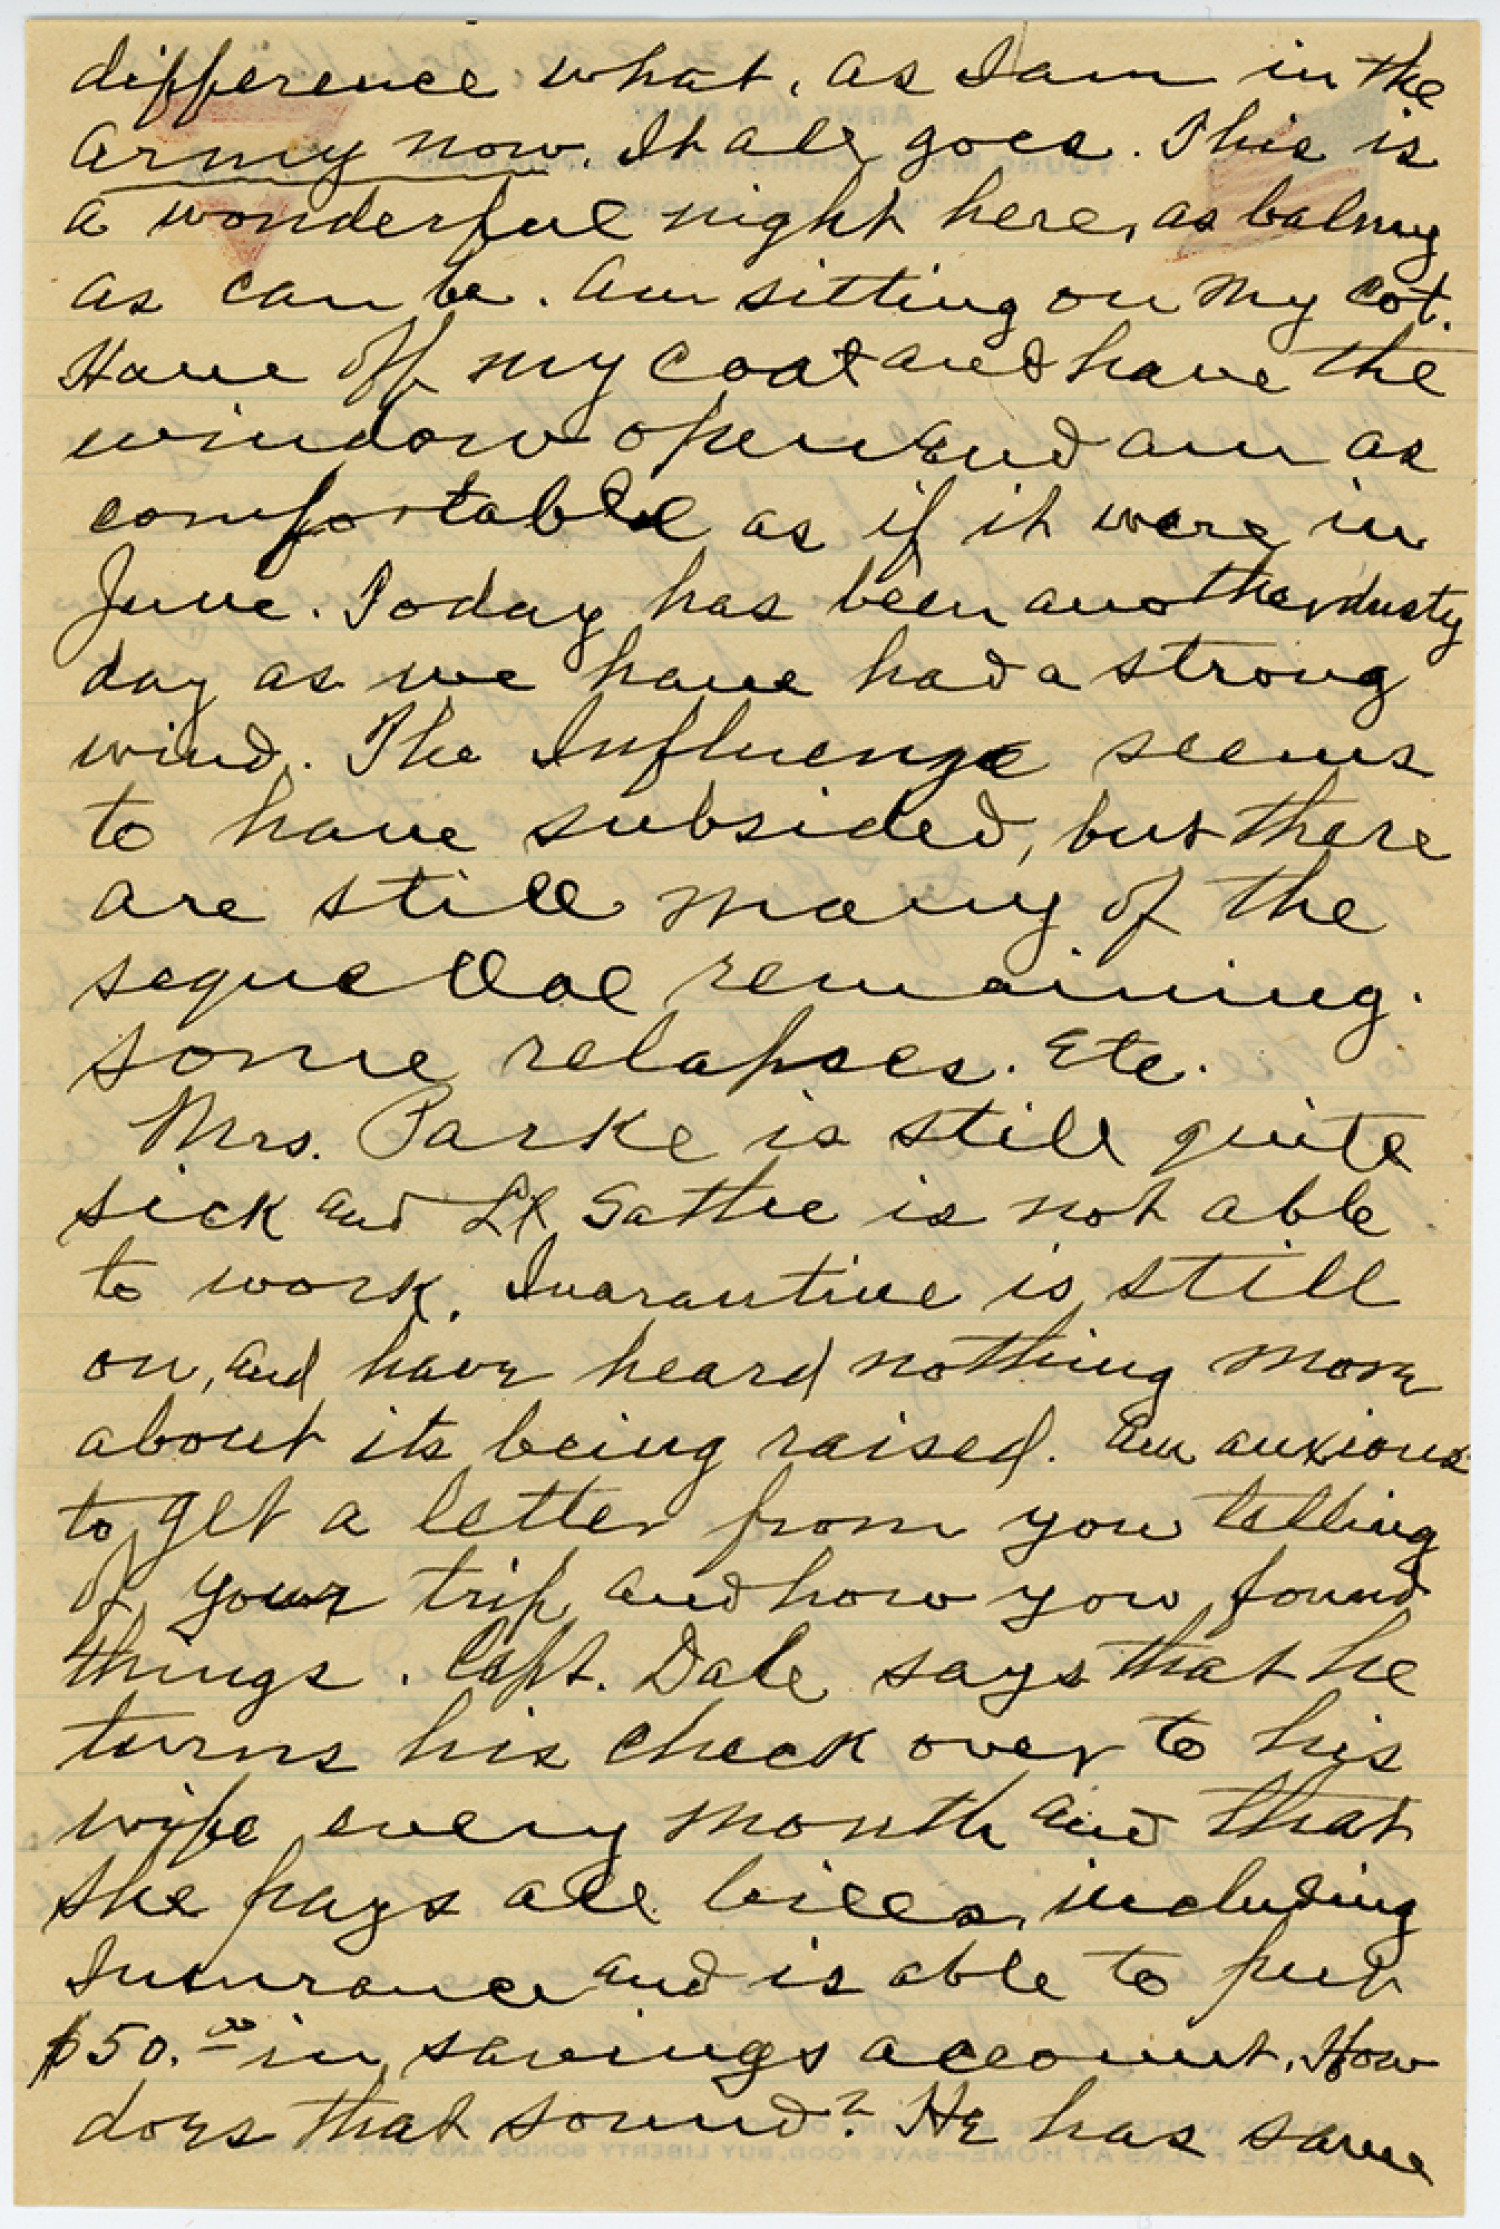 difference what, as I am in the
army now. It all goes. This is
a wonderful night here, as balmy
as can be. Am sitting on my cot.
Have off my coat and have the
window open and am as
comfortable as if it were in
June. Today has been another dusty
day as we have had a strong
wind. The Influenza seems
to have subsided, but there
are still many of the
sequellae remaining.
some relapses. Etc.
Mrs. Parke is still quite
sick and Lt is not able
to work. Quarantine is still
on, and have heard nothing more
about its being raised. Am anxious
to get a letter from you telling
of your trip and how you found
things. Capt. Dale says that he
turns his check over to his
wife every month and that
she pays all bills, including
Insurance and is able to put
$50.00 in savings account. How
does that sound? He has same